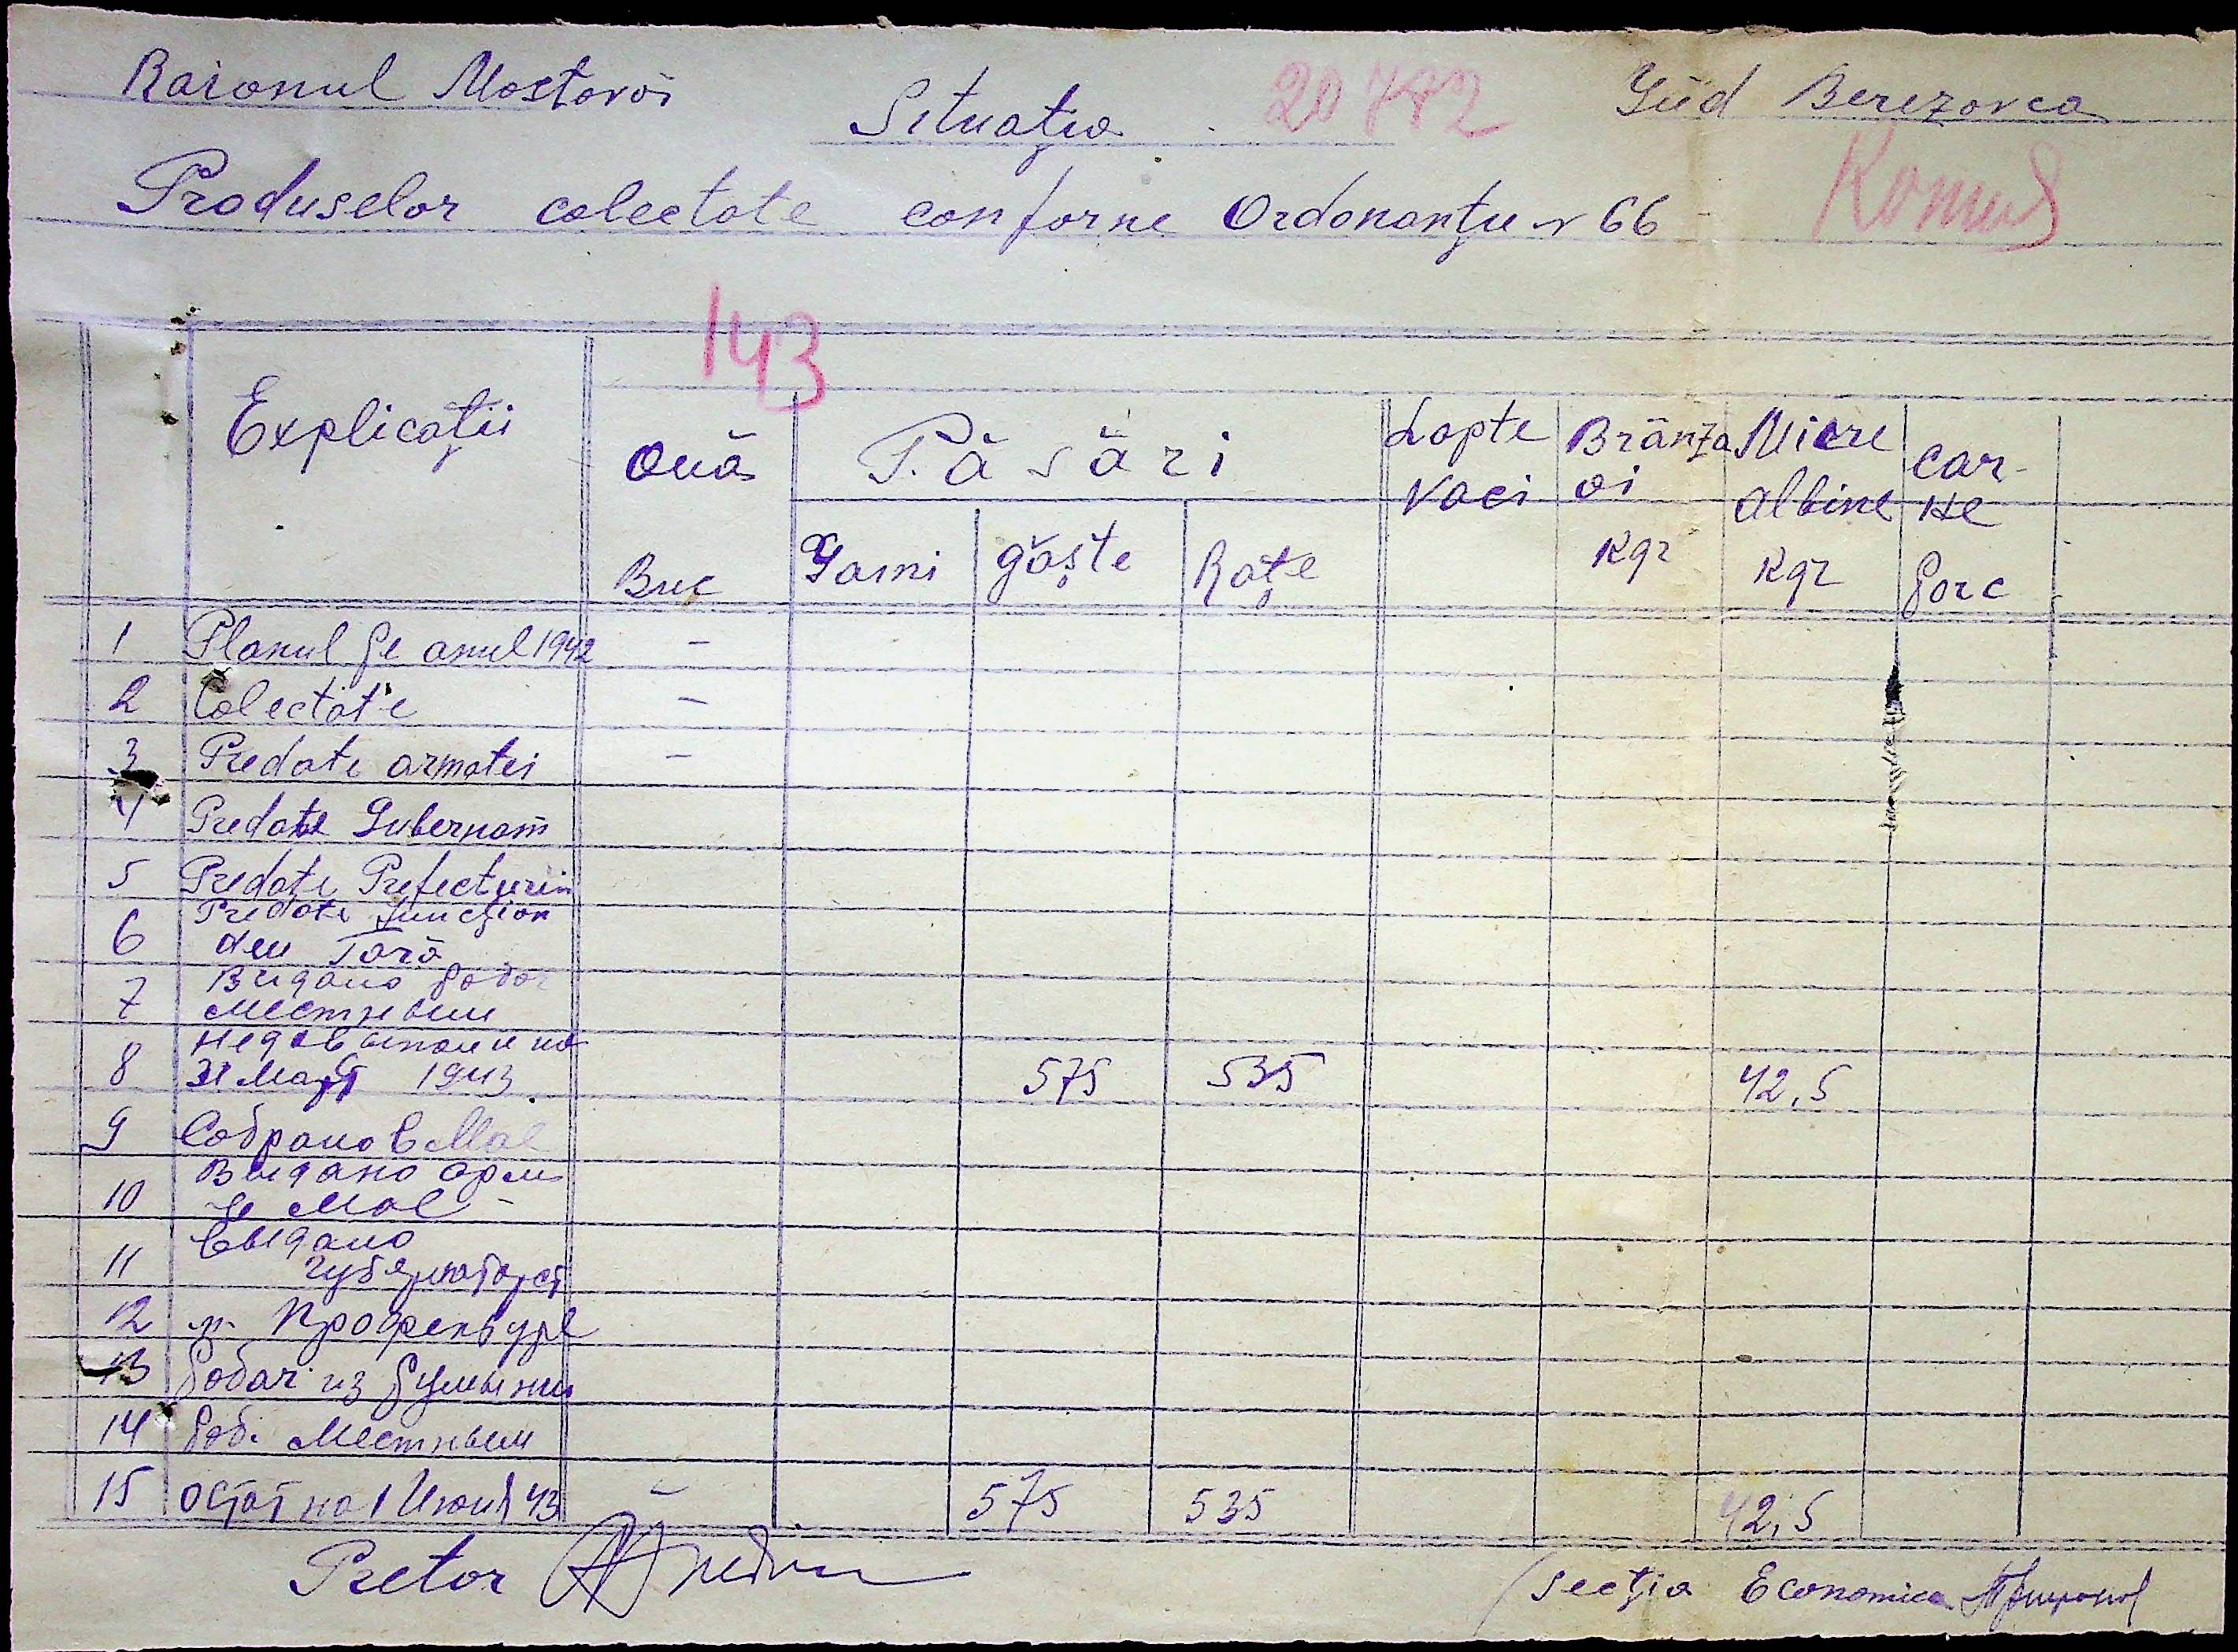 Raionul Mostovoi
Situația
20782
Jud Berezovca
Produselor colectate conforne Ordonanțu N 66
Romus
143
Explicații
Ouă
Buc
Păsări
Gaini
gâște
Rațe
Lapte
Vaci
Brânza
oi
Kgr
Miere
albine
Kgr
car-
ne
porc
1 Planul pe anul 1942 –
2 Colectate –
3 Predate armatei –
4 Predate Gubernam
5 Predate Prefecturii
6 Predate funcțion
den Țară
7 Выдано рабоч
местным
8 Недовыполнено
31 Март 1943 575 535 42,5
9 Собрано в Мае
10 Выдано арм
в Мае
11 Выдано
губернаторст
12 " Профектуре
13 Робоч из Румынии
14 Роб. Местным
15 Остат на 1 Июня 43 – 575 535 42,5
Pretor
Secția Economica